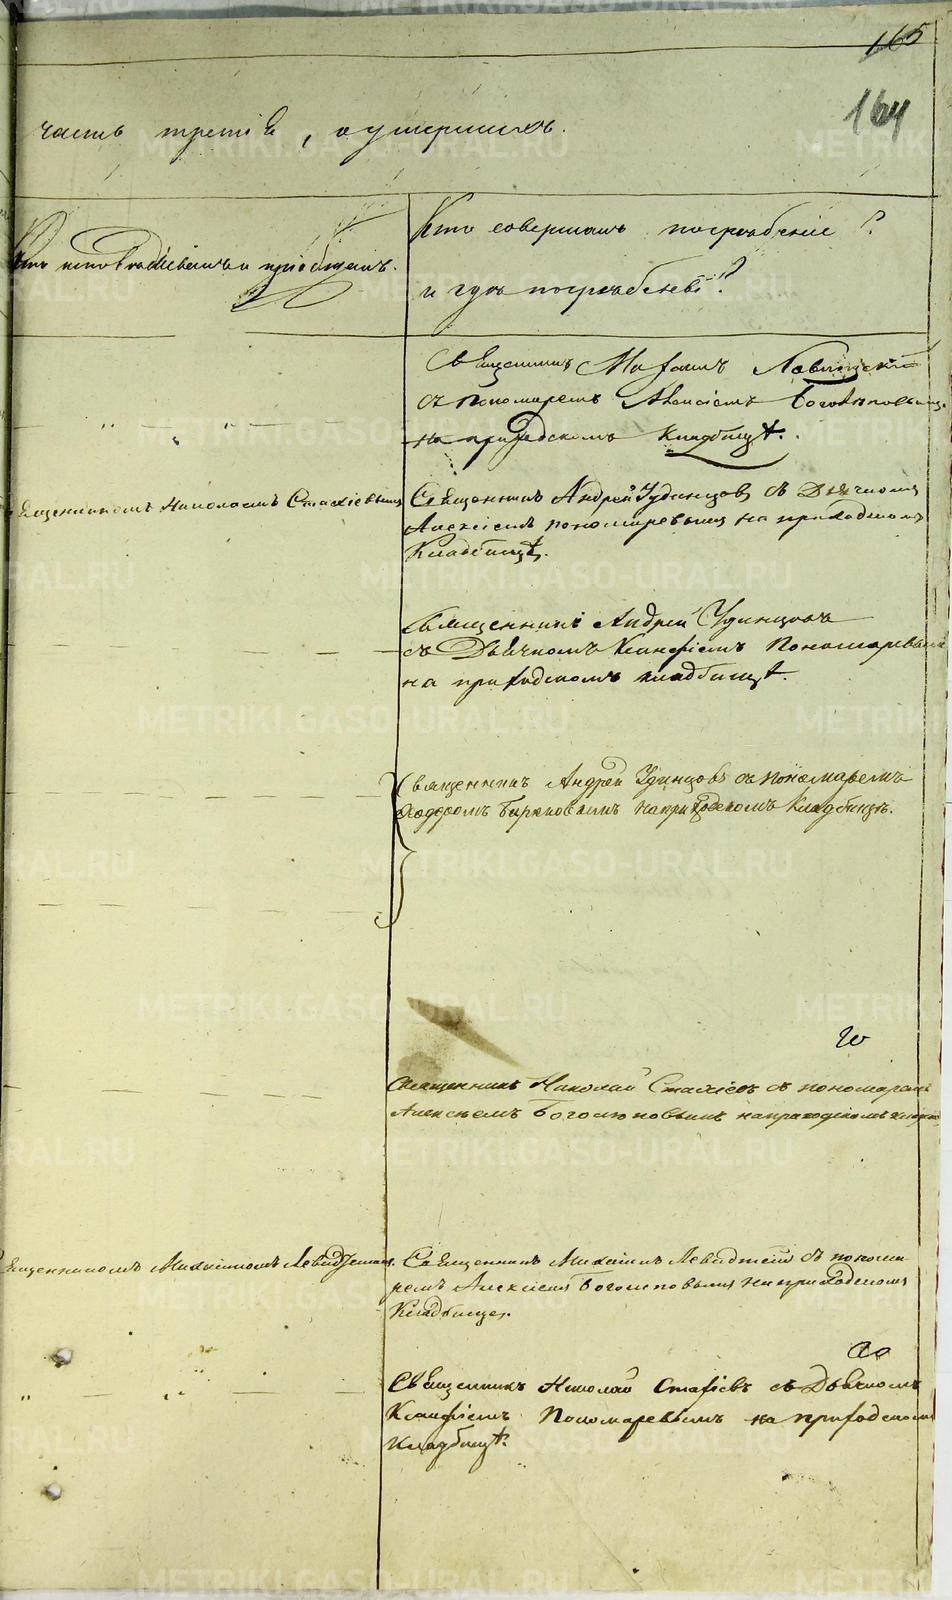 165
164
часть третія, о умершихъ.
Кто исповѣдывалъ и пріобщалъ.
Кто совершалъ погребеніе?
и гдѣ погребены?
Священникъ Михаилъ
съ пономаремъ Алексіемъ
на приходскомъ кладбищѣ.
Священникомъ Николаемъ Стахіевымъ
Священникъ Андрей Удинцовъ съ Дьячкомъ
Алексіемъ Пономаревымъ на приходскомъ
Кладбищѣ.
Священникъ Андрей Удинцовъ
съ Дьячкомъ Пономаревымъ
на приходскомъ кладбищѣ.
Священникъ Андрей Удинцовъ съ пономаремъ
Ѳеодоромъ на приходскомъ Кладбищѣ.
Священникъ Николай Стахіевъ съ пономаремъ
Алексѣемъ Боголюповымъ на приходскомъ
Священникомъ Михаиломъ
Священникъ Михаилъ съ понома
ремъ Алексіемъ Боголюповымъ на приходскомъ
Кладбище.
Священникъ Николай Стахіевъ съ Дьячкомъ
Пономаревымъ на приходскомъ
Кладбищѣ.
METRIKI.GASO-URAL.RU